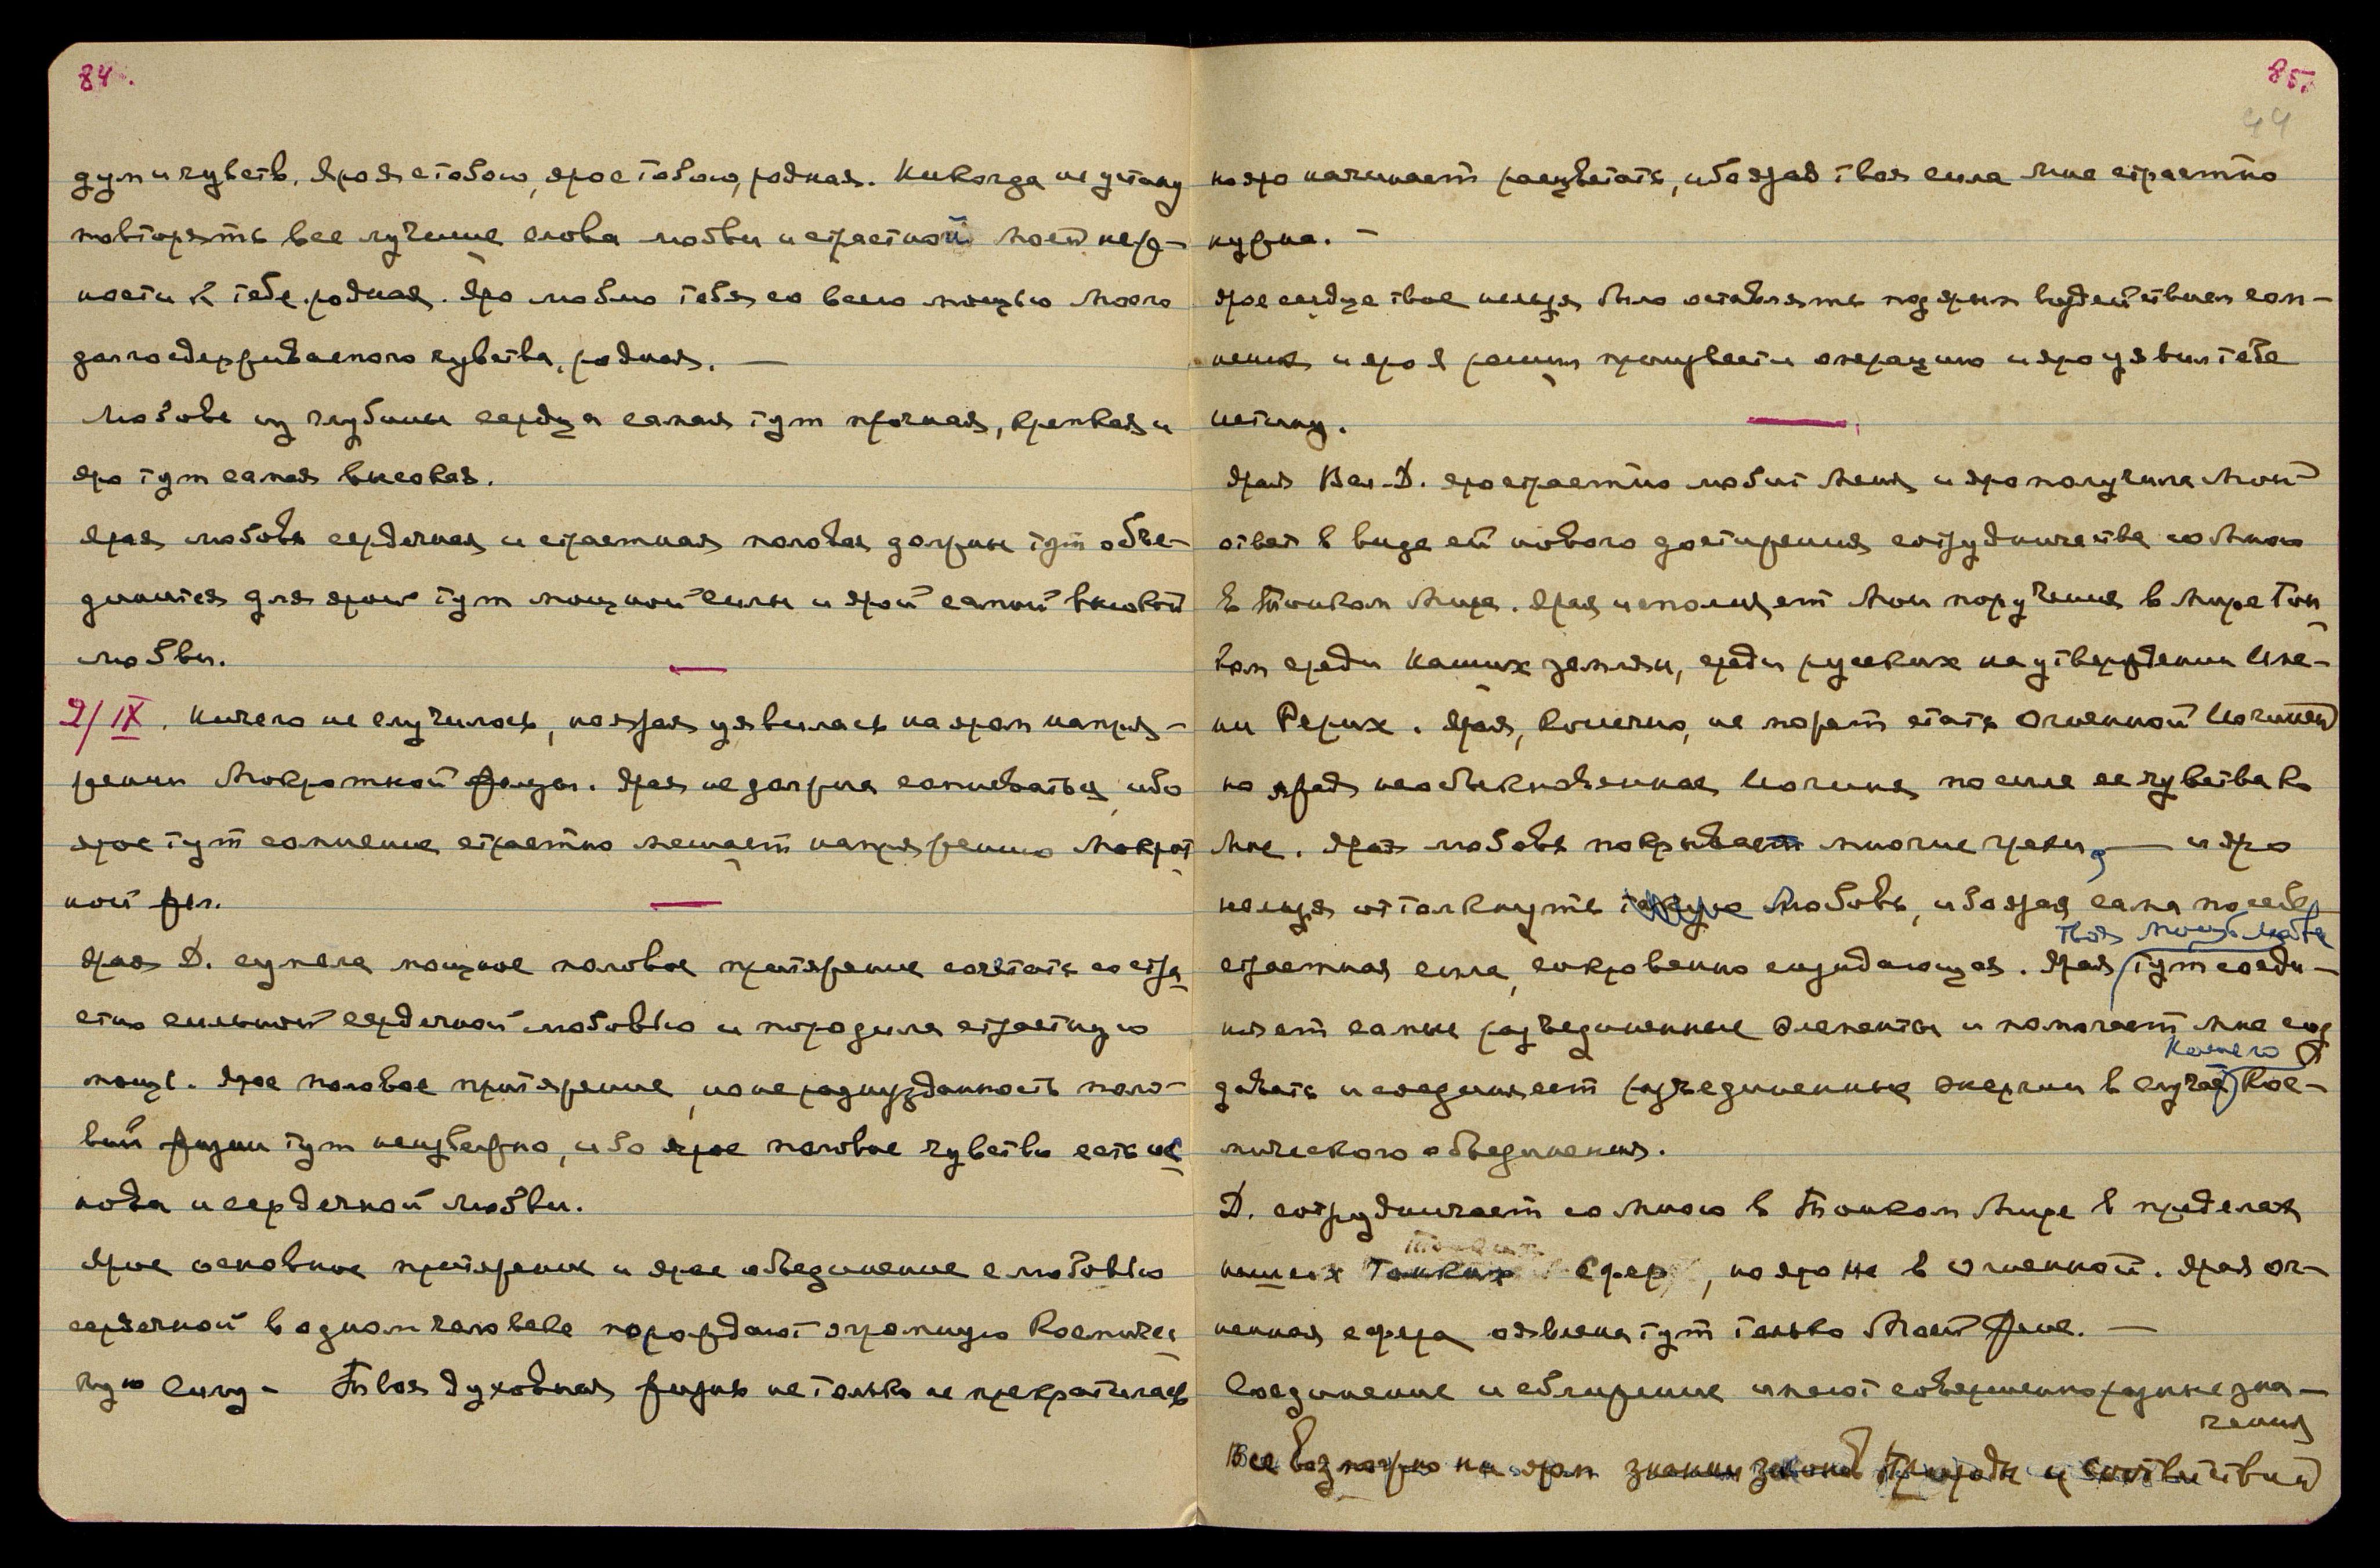 84.
дум и чувств. Яро я с тобою, яро с тобою, родная. Никогда не устану
повторять все лучшие слова любви и страстной моей неж-
ности к тебе, родная. Яро люблю тебя со всею мощью моего
долгосдерживаемого чувства, родная. —
Любовь из глубины сердца самая тут прочная, крепкая и
яро тут самая высокая.
Ярая любовь сердечная и страстная половая должны тут объе-
диниться для ярой тут мощной силы и ярой самой высокой
любви.
2/IX. Ничего не случилось, но ярая уявилась на яром напря-
жении Мокротной железы. Ярая не должна сомневаться, ибо
ярое тут сомнение страстно мешает напряжению Мокрот
ной жел.
Ярая Д. сумела мощное половое притяжение сочетать со стра
стно сильной сердечной любовью и породила страстную
мощь. Ярое половое притяжение, но не разнузданность поло-
вой жизни тут неизбежно, ибо ярое половое чувство есть ос
нова и сердечной любви.
Ярое основное притяжение и ярое объединение с любовью
сердечной в одном человеке порождают огромную Космичес
кую Силу — Твоя духовная жизнь не только не прекратилась
85.
44
но яро начинает расцветать, ибо ярая твоя сила Мне страстно
нужна. —
Ярое сердце твое нельзя было оставлять под ярым воздействием сом-
нения и яро я решил произвести операцию и яро уявил тебе
истину.
Ярая Вал. Д. яро страстно любит Меня и яро получила Мой
ответ в виде ей нового достижения сотрудничества со Мною
в Тонком Мире. Ярая исполняет Мои поручения в Мире Тон
ком среди наших землян, среди русских на утверждении Име-
ни Рерих. Ярая, конечно, не может стать Огненной Иогиней
но ярая необыкновенная Иогиня по силе ее чувства ко
Мне. Ярая любовь покрывает многие грехи, — и яро
нельзя оттолкнуть такую Любовь, ибо ярая сама по себе
твоя мощь любви
страстная сила, сокровенно созидающая. Ярая тут соеди-
няет самые разъединенные элементы и помогает Мне соз
нашего
давать и соединяет разъединенные энергии в случае Кос-
мического объединения.
Д. сотрудничает со Мною в Тонком Мире в пределах
наших Тонких Сфер, но яро не в Огненной. Ярая ог-
ненная сфера оявлена тут только Моей Жене. —
Соединение и сближение имеют совершенно разные зна-
чения
Все возможно на яром знании законов Природы и соответствий